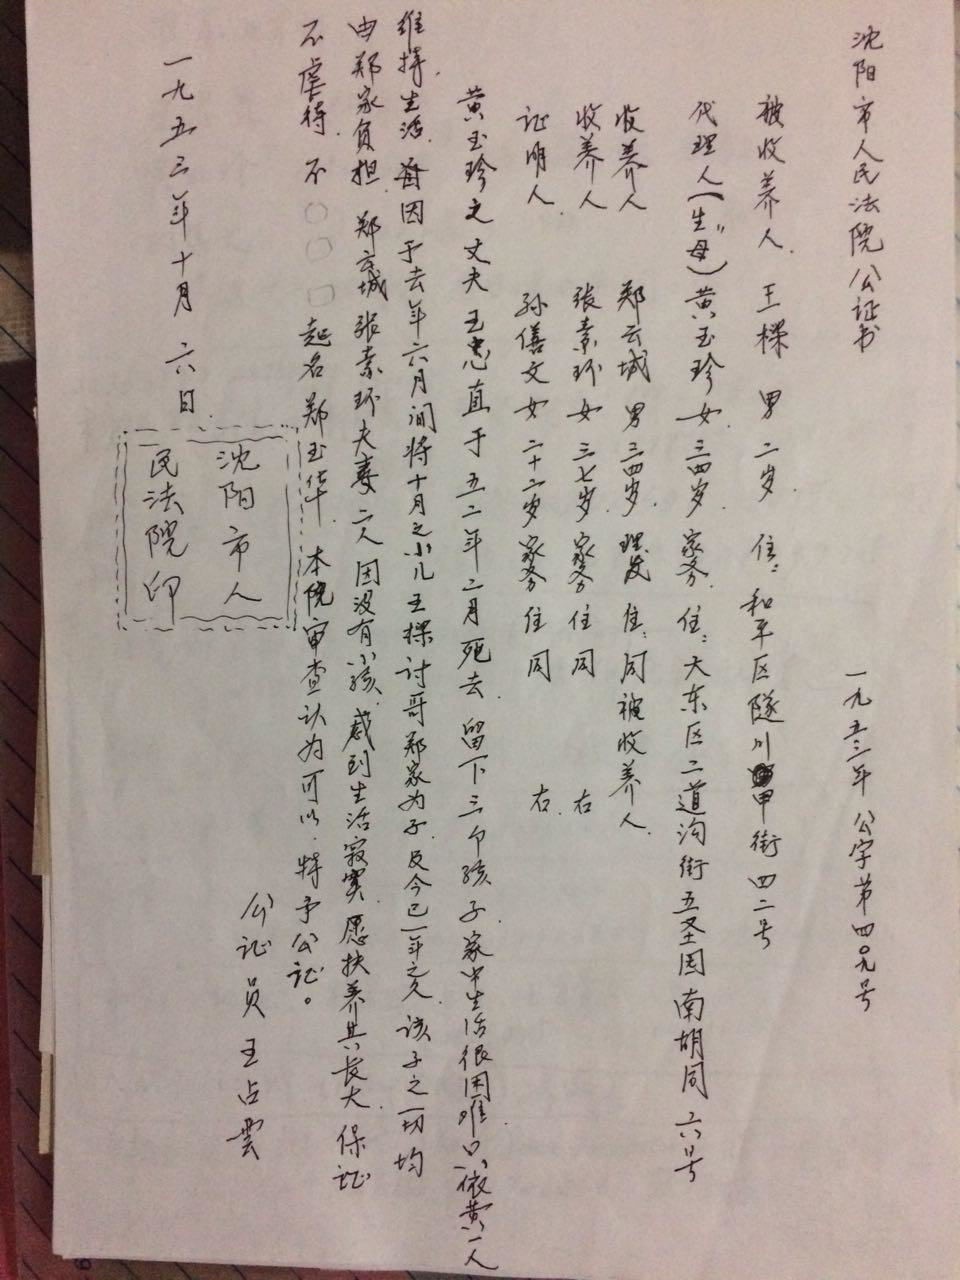 沈阳市人民法院公证书
一九五三年公字第四〇九号
被收养人 王棵 男 二岁 住：和平区隧川街四二号
代理人（生母）黄玉珍 女 三四岁 家务 住：大东区二道沟街五圣园南胡同六号
收养人 郑云城 男 三四岁 理发 住：同被收养人
收养人 张素环 女 三七岁 家务 住同右
证明人 孙僐文 女 二十二岁 家务 住同右
黄玉珍之丈夫王忠直于五二年二月死去 留下三个孩子 家中生活很困难 只依黄一人
维持生活 因于去年六月间将十月之小儿王棵讨哥郑家为子 及今已一年之久 该子之一切均
由郑家负担 郑云城 张素环夫妻二人因没有小孩 感到生活寂寞 愿扶养其长大 保证
不虐待 不〇〇〇 起名郑玉华 本院审查认为可以 特予公证。
公证员 王占雲
一九五三年十月六日
沈阳市人
民法院印